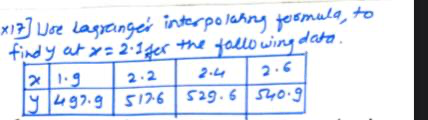 x17] Use Lagranger's interpolating formula, to
find y at x = 2.1 for the following data.
x 1.9 2.2 2.4 2.6
y 497.9 517.6 529.6 540.9